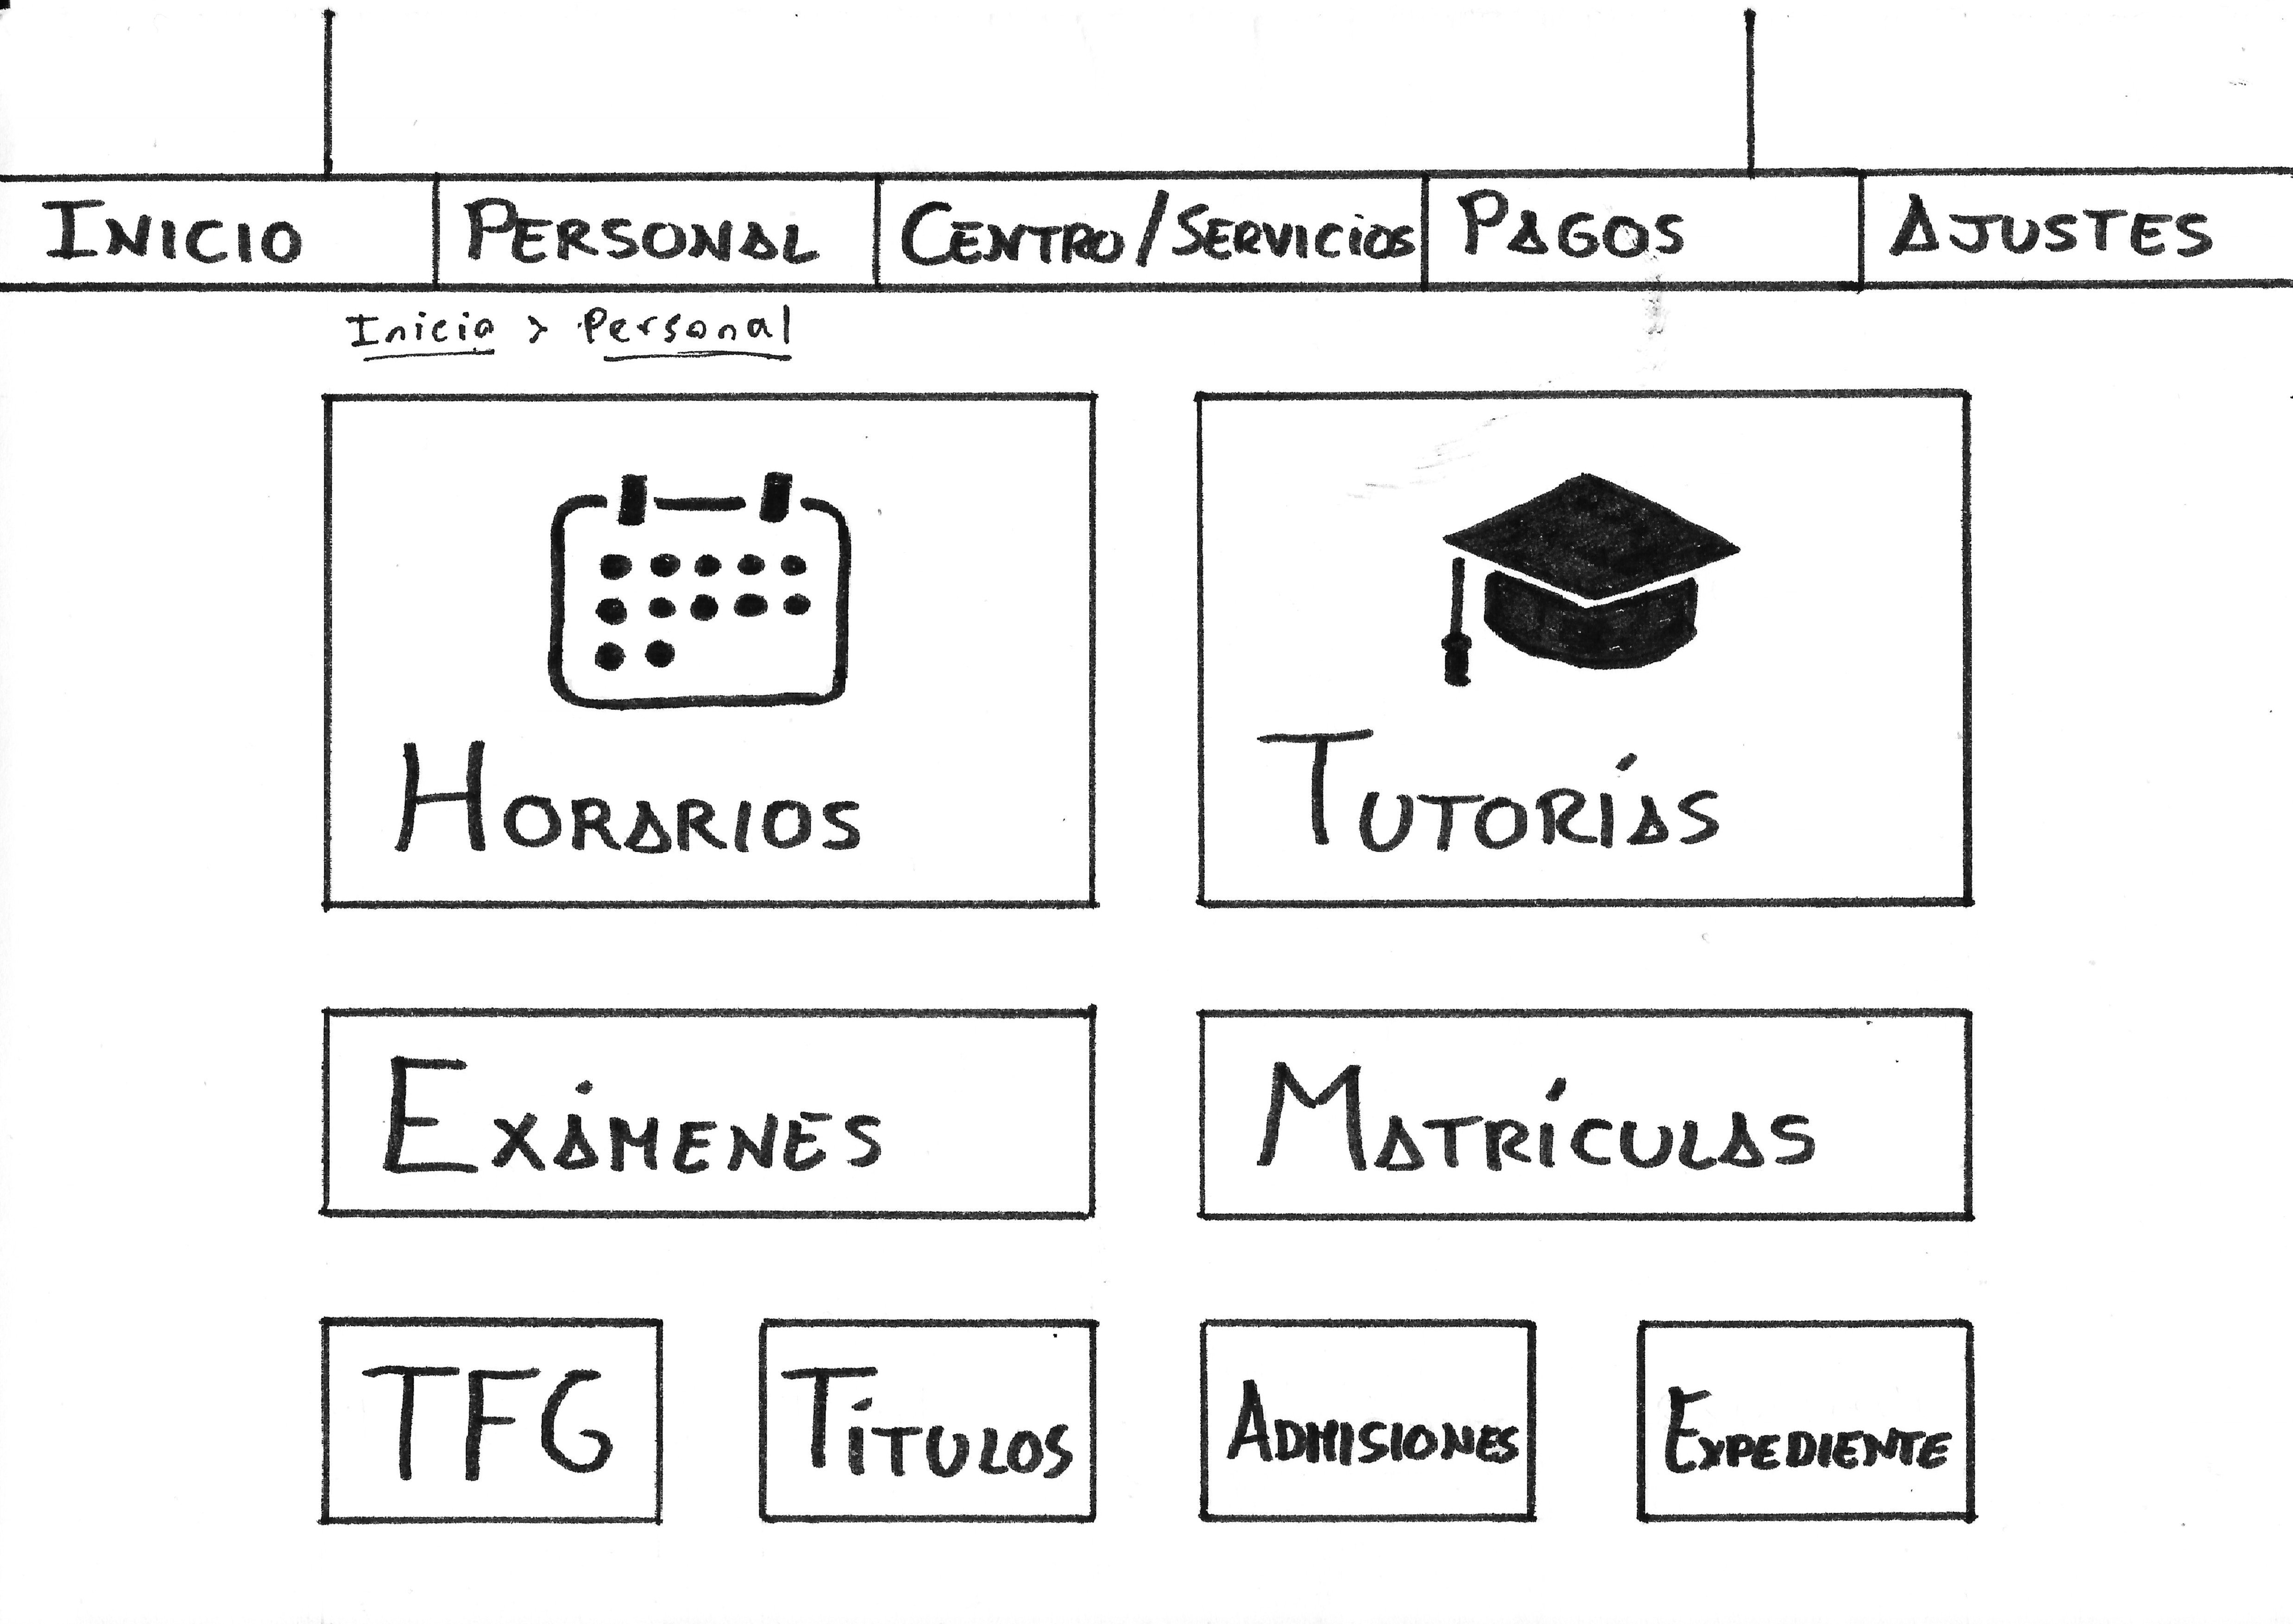 INICIO PERSONAL CENTRO/SERVICIOS PAGOS AJUSTES
Inicio > Personal
HORARIOS TUTORÍAS
EXÁMENES MATRÍCULAS
TFG TÍTULOS ADMISIONES EXPEDIENTE